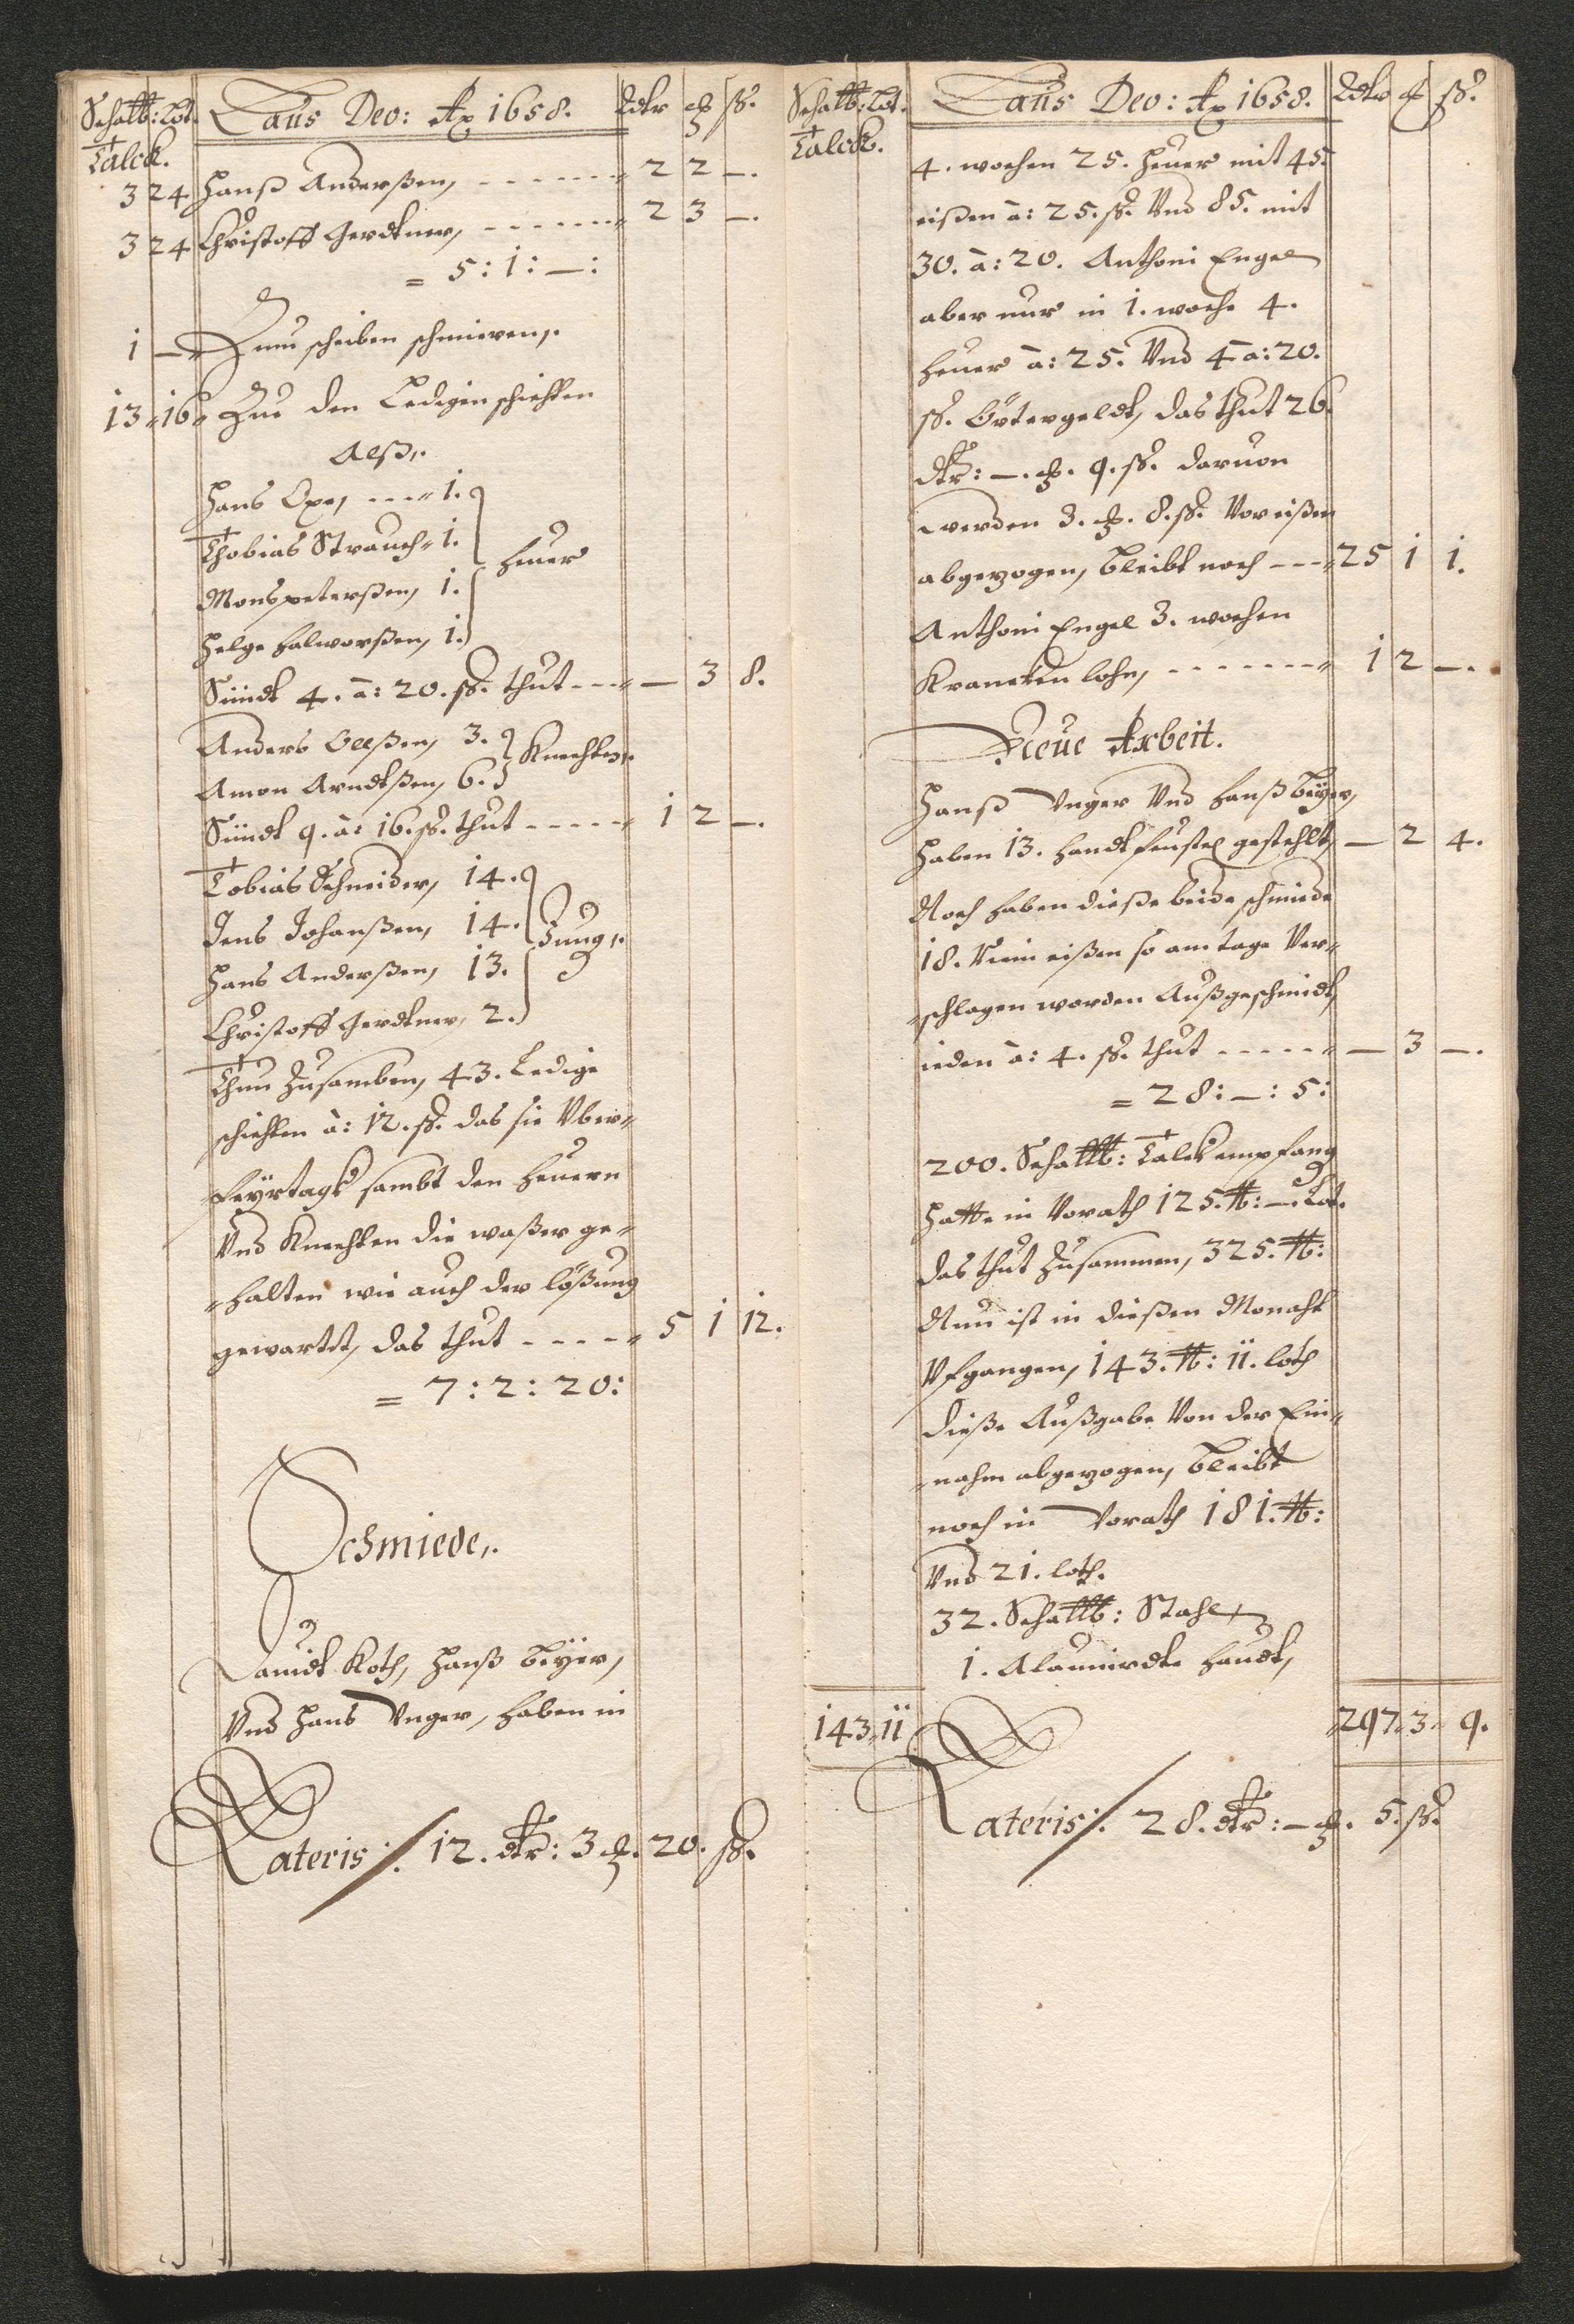 Schalb: Lot. Laus Deo: Ao 1658. Rdtr ȹ ss.
Talck.
3 24 Hanß Anderßen, - - - - - - " 2 2 —.
3 24 Christoff Gerdtner, - - - - - - " 2 3 —.
= 5: 1: —:
1 — Zum scheiben schmieren,.
13 " 16 " Zue den Ledigen schichten
Alß,.
Hans Oxe, - - - " 1.
Thobias Strauch " 1.
Heuer
Mons peterßen, 1.
Helge halworßen, 1.
Sündt 4. à: 20. ss. thut - - - " — 3 8.
Anders Olßen, 3.
Knechten,.
Amon Arndtßen, 6.
Sündt 9. à: 16. ss. thut - - - - - " 1 2 —.
Tobias Schneider, 14.
Jens Johanßen, 14.
Jung,.
Hans Anderßen, 13.
Christoff Gerdtner, 2.
Thun Zusamben, 43. Ledige
schichten à: 12. ss. das sie Uber"
"feyrtagk sambt den Heuern
Und Knechten die waßer ge"
"halten wie auch der lößung
gewartet, das thut - - - - " 5 1 12.
= 7: 2: 20:
Schmiede,.
Dauidt Koth, Hanß beyer,
Und Hans Unger, haben in
Lateris ./. 12. dtr: 3 ȹ. 20. ss.
Schalb: Lot. Laus Deo: Ao 1658. Rdtr ȹ ss.
Talck.
4. wochen 25. Heuer mit 45.
eißen à: 25. ss. Und 85. mit
30. à: 20. Anthoni Engel
aber nur in 1. woche 4.
heuer à: 25. Und 4 à: 20.
ss. Örtergeldt, das thut 26.
dtr: —. ȹ. 9. ss. daruon
werden 3. ȹ. 8. ss. Vor eißen
abgezogen, bleibt noch - - - " 25 1 1.
Anthoni Engel 3. wochen
Krancken lohn, - - - - - - - " 1 2 —.
Neue Arbeit.
Hanß Unger Und Hanß beyer,
haben 13. handt feustel gestehlt, — 2 4.
Noch haben dieße beide schmiede
18. eißen so am tage Ver"
"schlagen worden Außgeschmidt,
ieden à: 4. ss. thut - - - - - " — 3 —.
= 28: —: 5:
200. Schalb: Talck empfang
Hatte in Vorath 125. ℔: —. Lot.
das thut Zusammen, 325. ℔:
Nun ist in dießen Monaht
Ufgangen, 143. ℔: 11. loth
Dieße Außgabe Von der Ein"
"nahm abgezogen, bleibt
noch in Vorath 181. ℔:
Und 21. loth.
32. Schalb: Stahl
1. haudt,
143 " 11 " 297 " 3 " 9.
Lateris ./. 28. dtr: — ȹ. 5. ss.